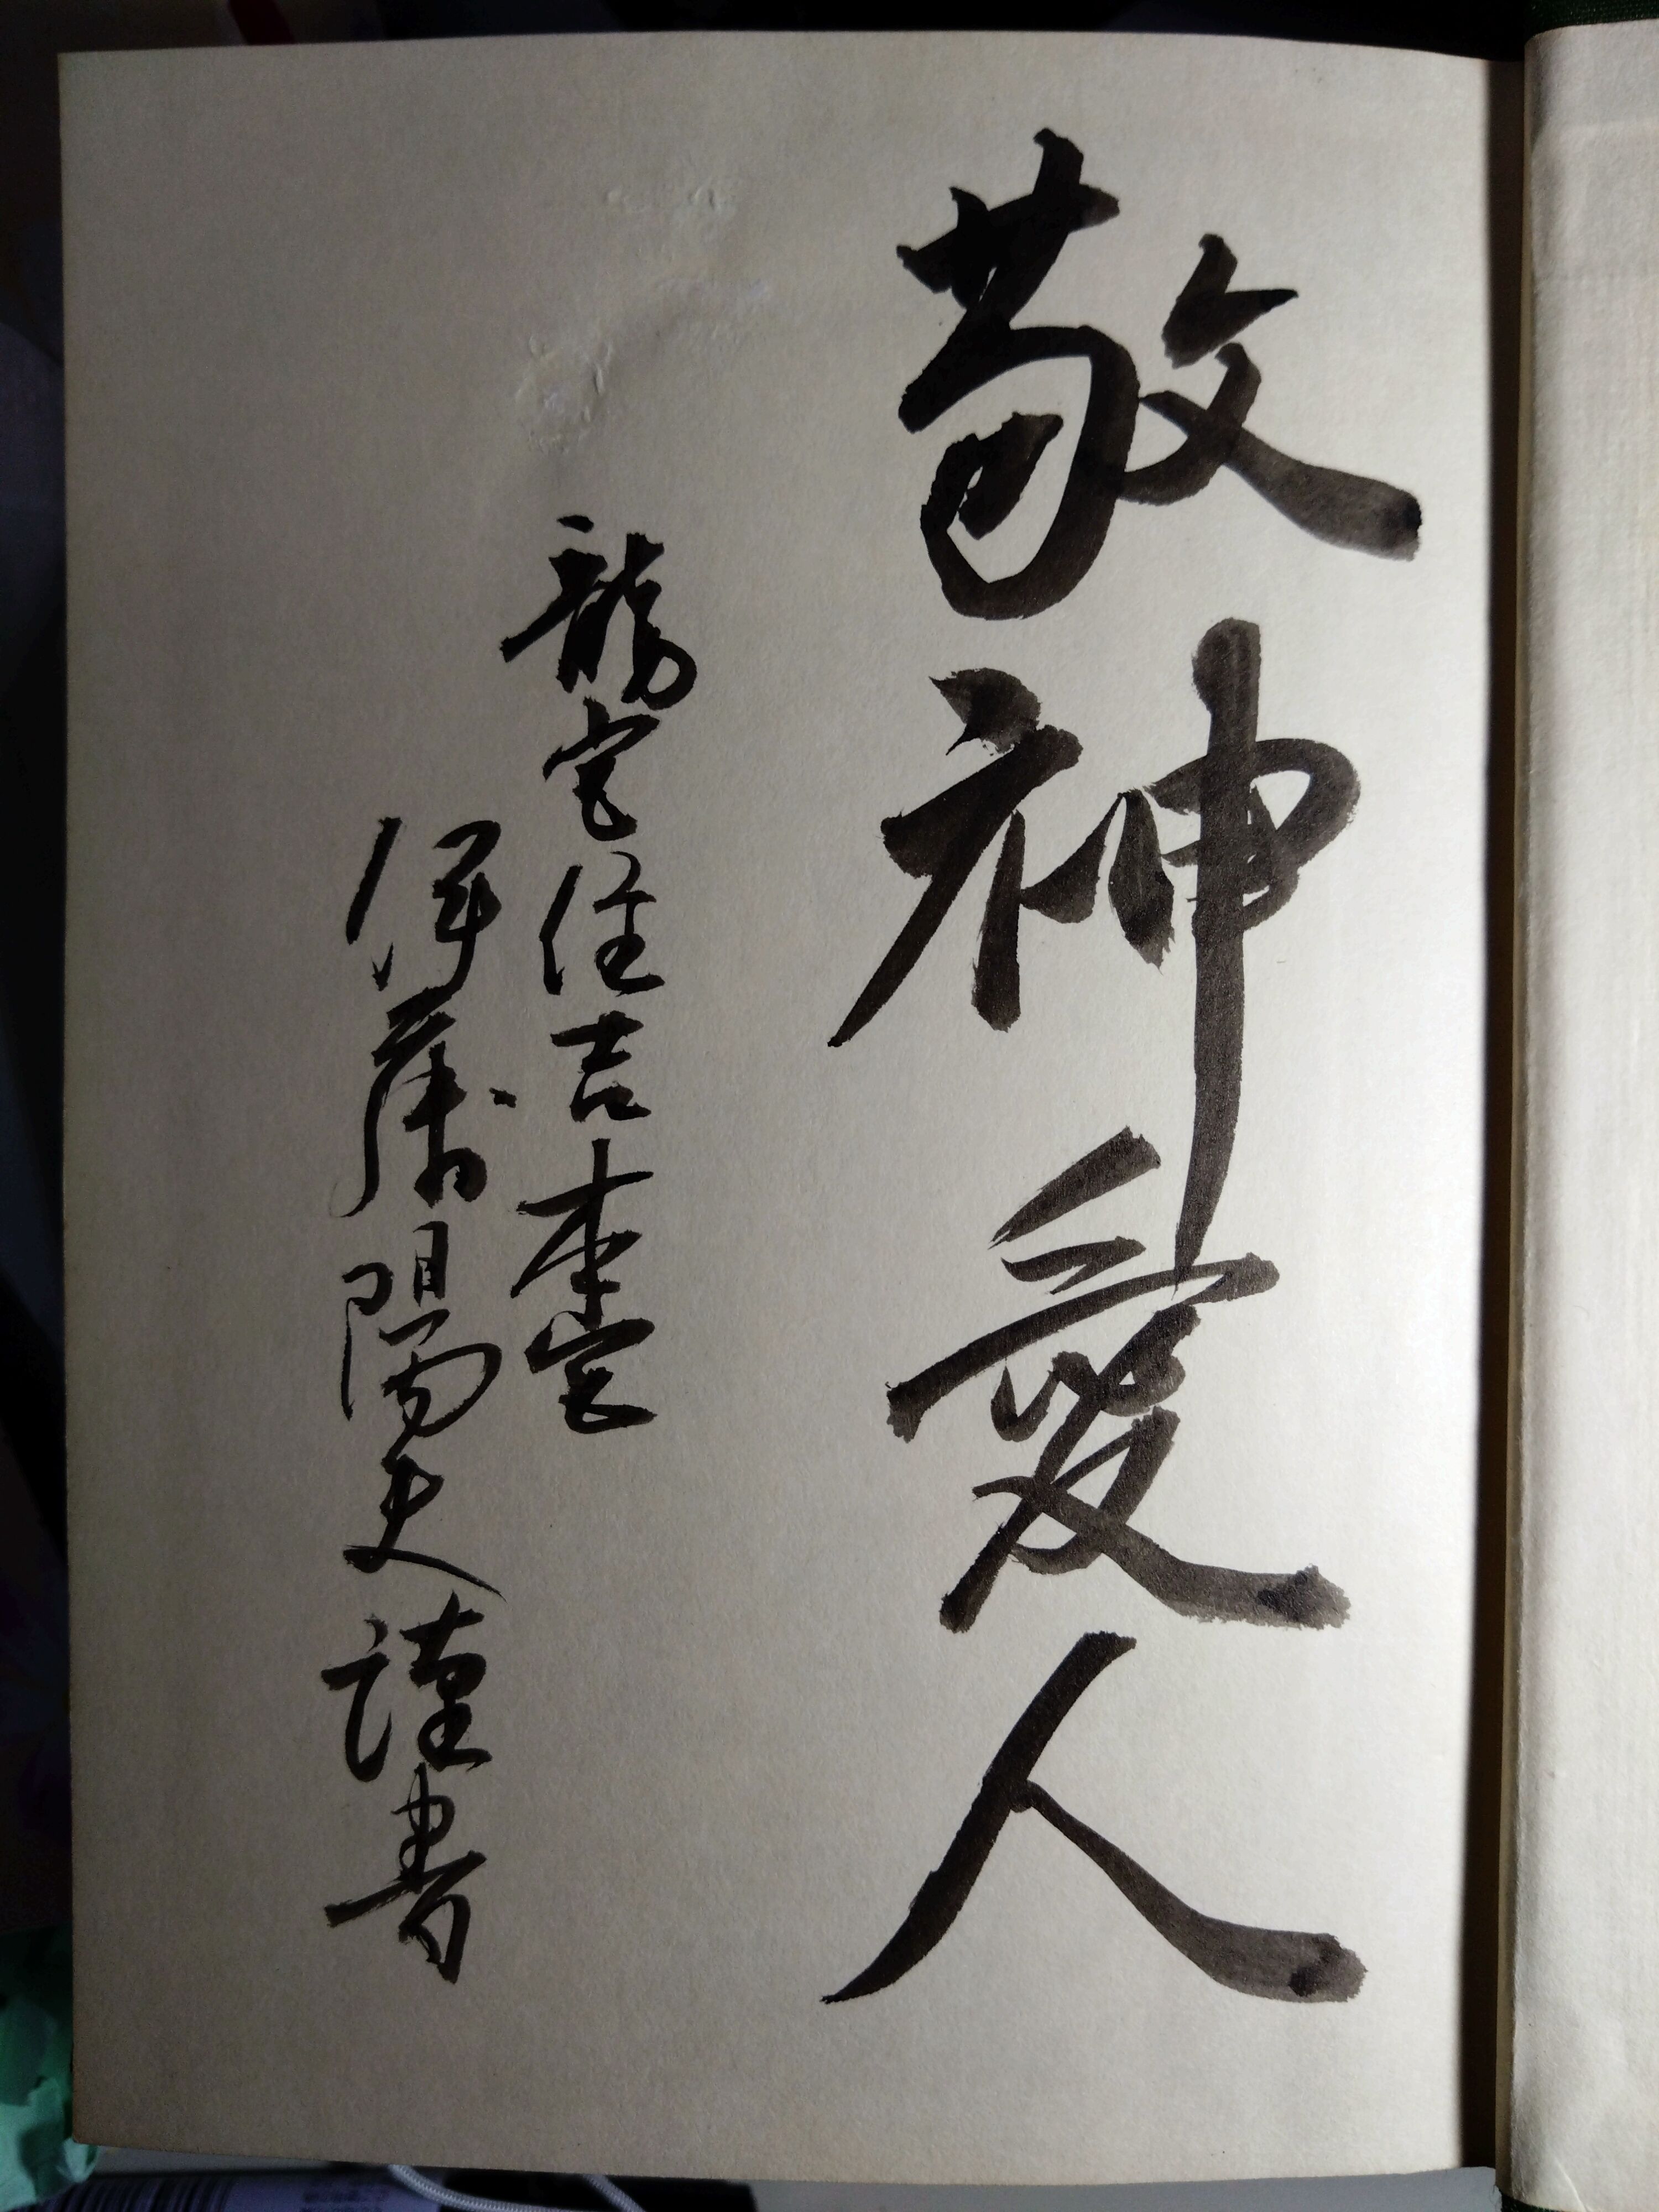 敬神愛人
龍宮住吉本宮
伊藤陽夫謹書